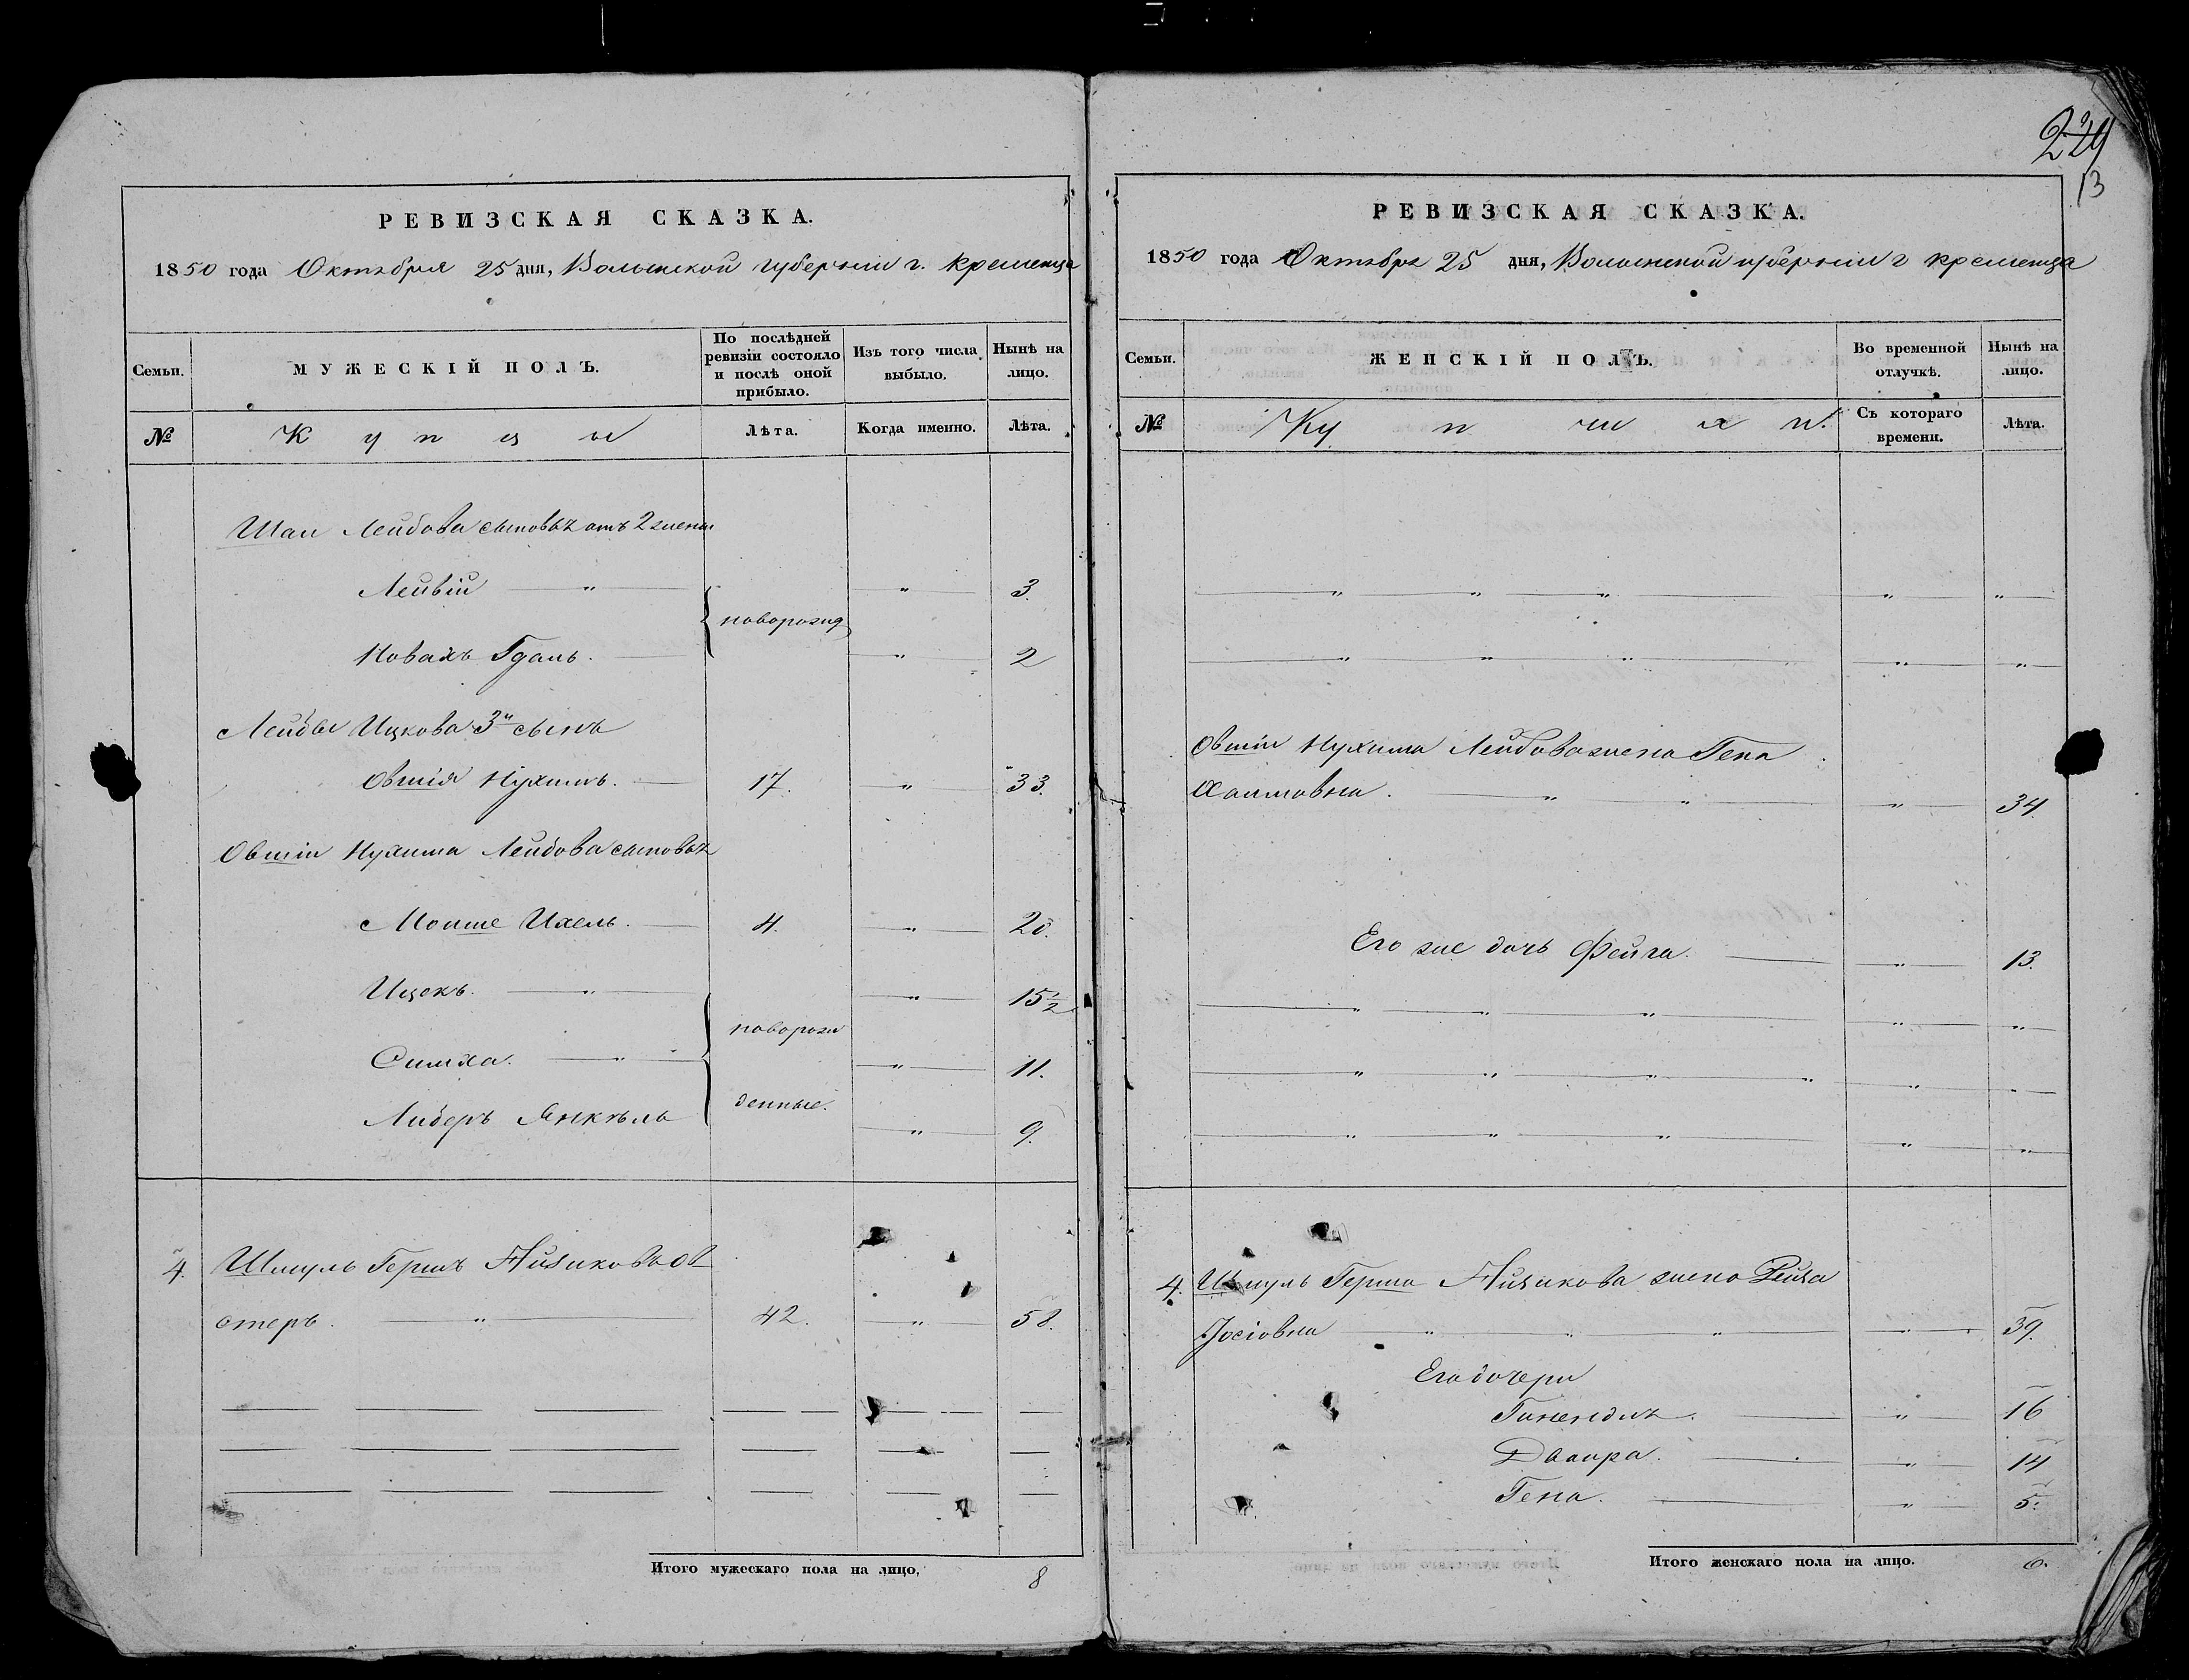 229
13
РЕВИЗСКАЯ СКАЗКА.
1850 года Октября 25 дня, Волынской губернии г. Кременца
Семьи.
МУЖЕСКІЙ ПОЛЪ.
По послѣдней ревизіи состояло и послѣ оной прибыло.
Изъ того числа выбыло.
Нынѣ на лицо.
№
Купцы
Лѣта.
Когда именно.
Лѣта.
Шаи Лейбова сыновья отъ 2 жены
Лейвій — " — " — 3.
новорожд
Новахъ Гдаль. — " — 2
Лейбы Ицкова 3й сынъ
Овшія Нухимъ. — 17. — " — 33.
Овшіи Нухима Лейбова сыновья
Моише Ихель. — 4. — " — 20.
Ицекъ. — " — " — 15 1/2
новорож
Симха. — " — " — 11.
денные.
Либеръ Янкель — " — 9.
4. Шмуль Гершъ
стеръ. — " — 42. — " — 58.
Итого мужескаго пола на лицо, 8
РЕВИЗСКАЯ СКАЗКА.
1850 года Октября 25 дня, Волынской губернии г Кременца
Семьи.
ЖЕНСКІЙ ПОЛЪ.
Во временной отлучкѣ.
Нынѣ на лицо.
№
Купчихи.
Съ котораго времени.
Лѣта.
" " " " "
" " " " "
Овшіи Нухима Лейбова жена Гена
Хаимовна. — " — " — " — 34.
Его же дочь Фейга. — " — 13.
" " " " "
" " " " " "
" " " " "
4. Шмуль Герша жена Рейза
Іосіовна — " — " — " — " — 39.
Его дочери
Гинендля. — " — 16
Двоира. — " — 14
Гена. — " — 5.
Итого женскаго пола на лицо. 6.